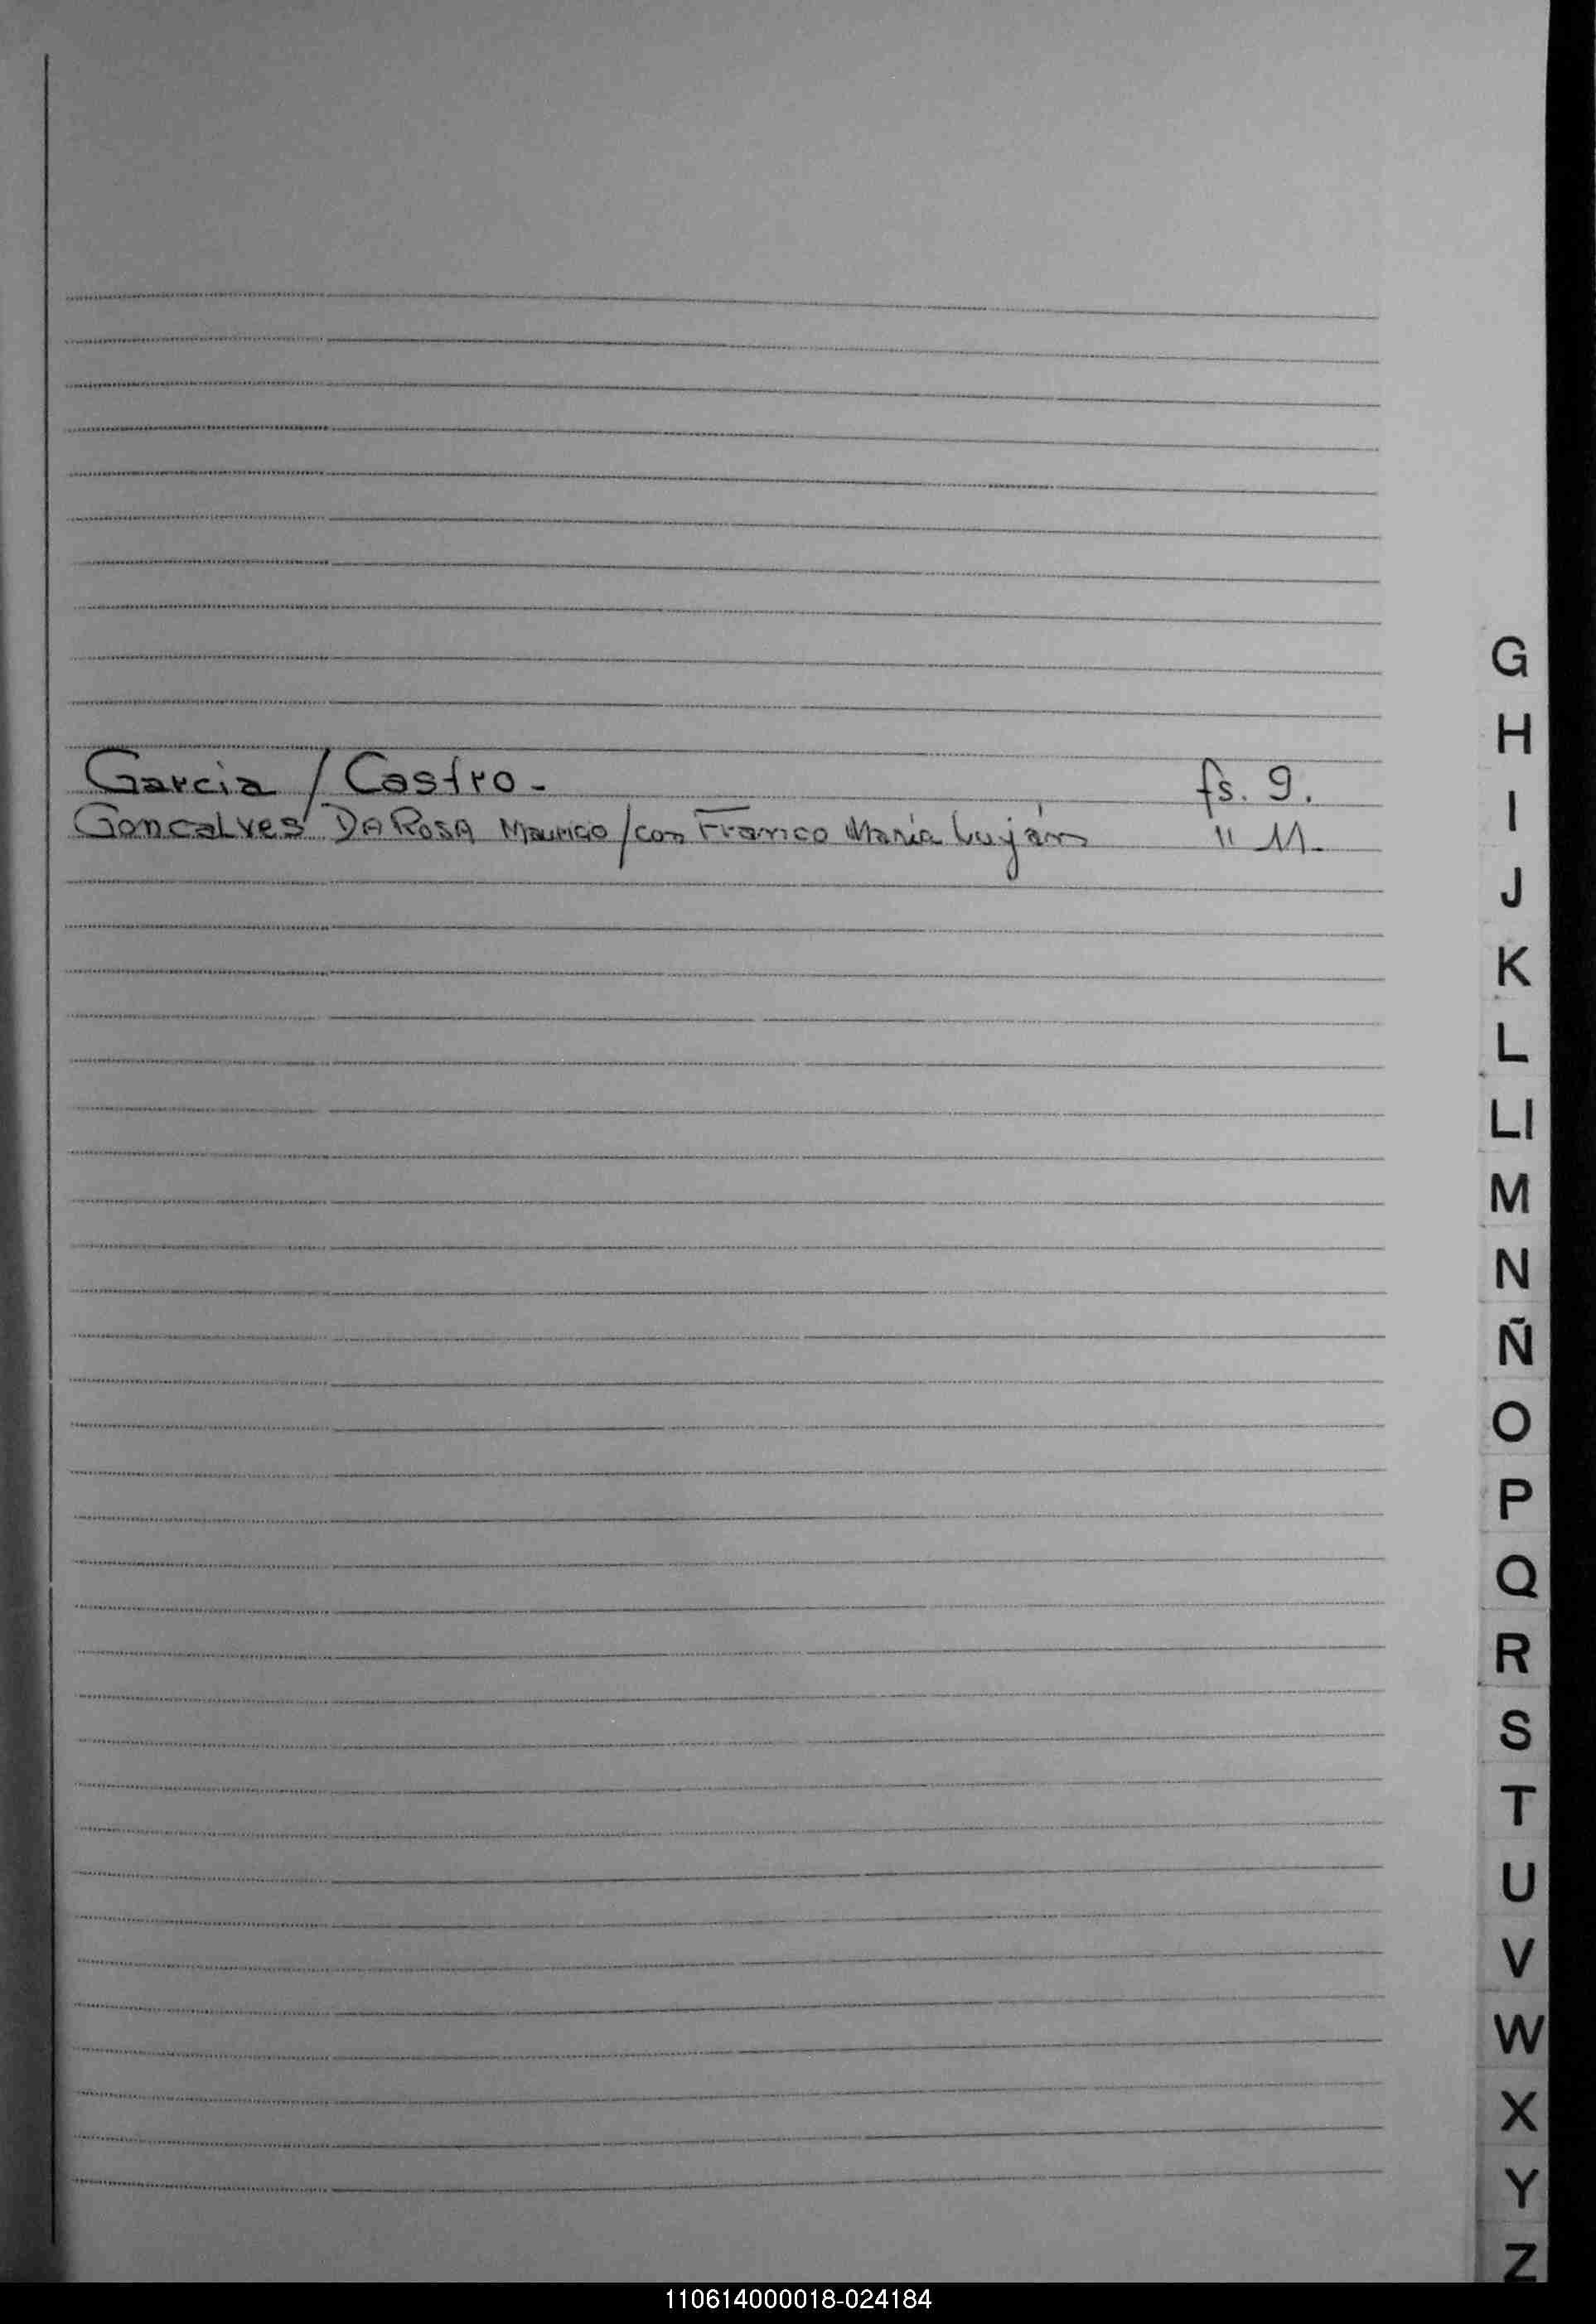 Garcia / Castro - fs. 9.
Goncalves DA ROSA Mauricio / con Franco María Luján " 11.
G
H
I
J
K
L
Ll
M
N
Ñ
O
P
Q
R
S
T
U
V
W
X
Y
Z
110614000018-024184